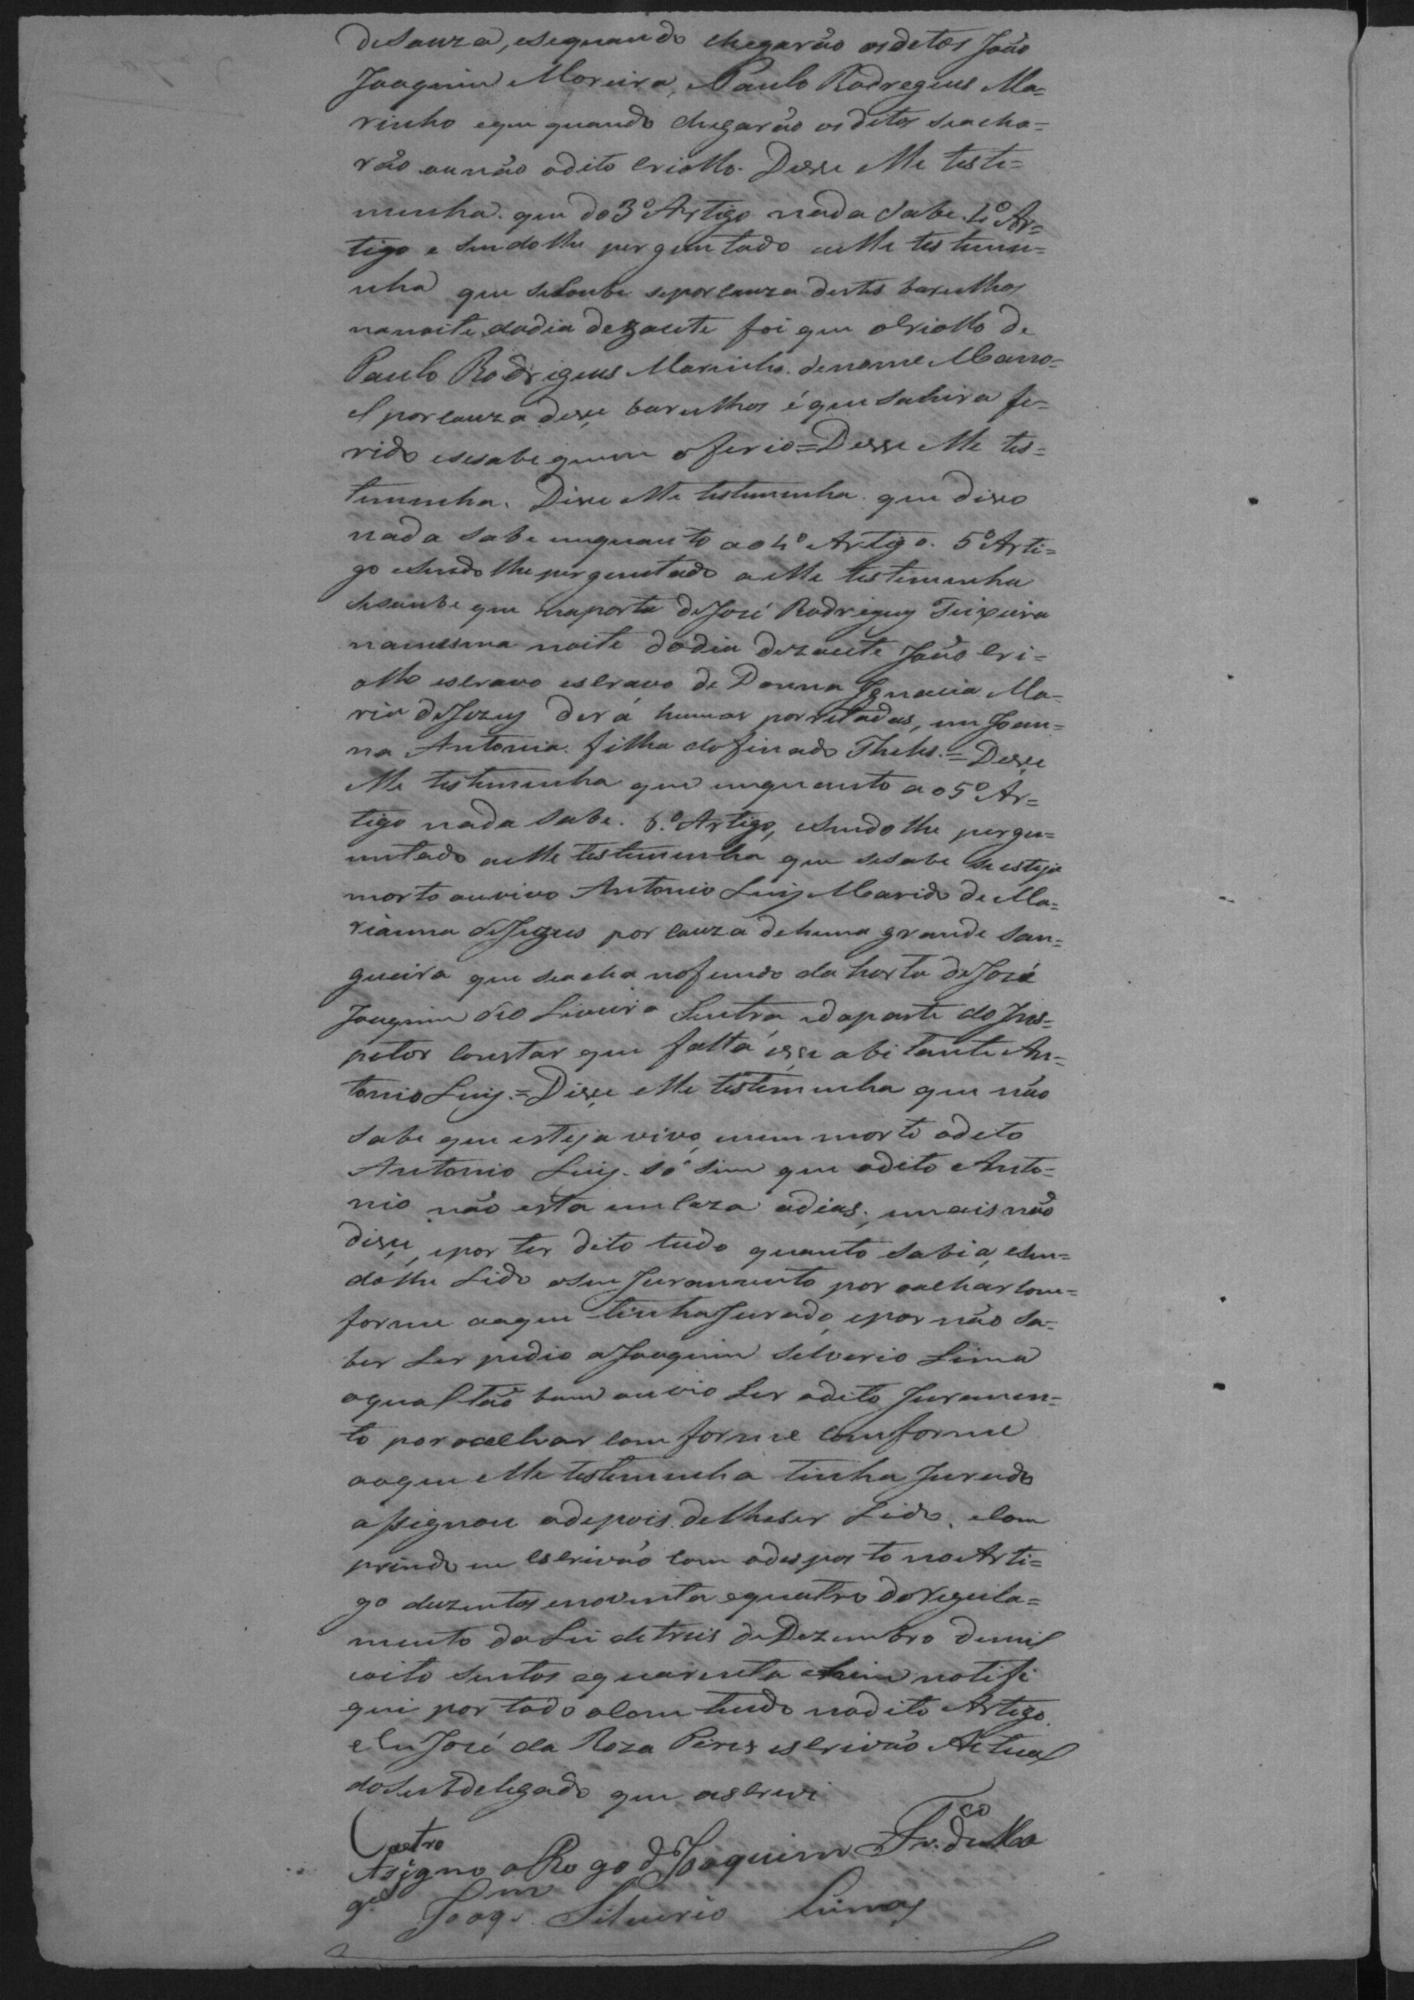 deSouza, esequando chegarão osditos João
Joaquim Moreira, Paulo Rodregeus Ma=
rinho eque quando chegarão osditos seacha=
rão ounão odito Criollo. Disse elle teste=
munha. que do 3º Artigo nada Sabe. 4º Ar=
tigo e Sendolhe perguntado aelle testemu=
nha que seSoube seporcauza destes barulhos
nanoite dodia dezacete foi que oCriollo de
Paulo Rodrigeus Marinho. denome Mano=
el porcauza desse barulhos é que Sahira fe=
rido esesabe quem oferio= Disse elle tes=
temunha. Disse elle testemunha. que disso
nada Sabe emquanto ao 4º Artigo. 5º Arti=
go eSendolhe perguntado aelle testemunha
seSoube que naporta deJosé Rodrigues Teixeira
namesma noite dodia dezacete João Cri=
ollo escravo escravo de Donna Ignacia Ma=
ria deJezus derá humas porretadas, em Joan=
na Antonia. filha dofinado = Disse
elle testemunha que emquanto ao 5º Ar=
tigo nada Sabe. 6º Artigo, eSendolhe pergu=
untado aelle testemunha que seSabe se esteja
morto ouvivo Antonio Luis Marido de Ma=
rianna deJezus por cauza dehuma grande San=
gueira que seacha nofundo da horta deJosé
Joaquim Sintra edaparte do Ins=
petor Constar que falta esse abitante An=
tonio Luis.= Disse elle testemunha que não
Sabe que esteja vivo, nem morto odito
Antonio Luis. Só sim que odito Anto=
nio não esta emCaza adias; emais não
disse, epor ter dito tudo quanto Sabia, eSen=
dolhe Lido oSeu Juramento por oachar Com=
forme aoque tinhaJurado, epor não Sa=
ber Ler pedio aJoaquim Selverio Lima
oqual tão bem ouvio Ler odito Juramen=
to poroachar Comforme Comforme
aoque elle testemunha tinha Jurado
assignou edepois delheser Lido, eCom
prindo eu Escrivão Com odisposto noArti=
go duzentos enoventa equatro doRegula=
mento daLei detreis deDezembro demil
oito Sentos equarenta ehum notifi
quei por todo oComtiudo nodito Artigo.
eEu José da Roza Peres escrivão Actual
doSubdelegado que oescrevi
Castro
Asigno aRogo de Joaquim Frco. de
Joaqm. Silverio Lima